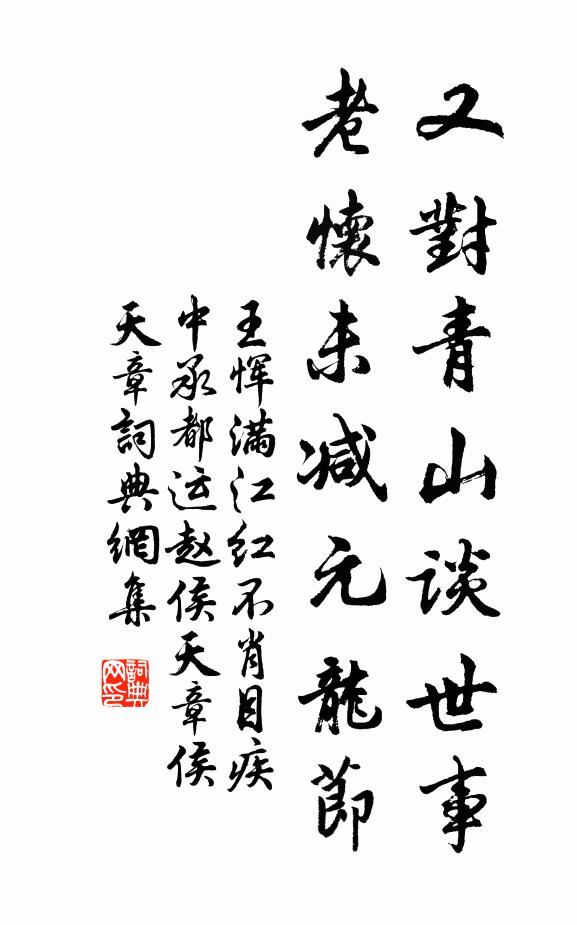 又對青山談世事
老懷未減元龍節
王恽满江红不肖目疾
中承都运赵侯天章侯
天章詞典網集
詞典
网印